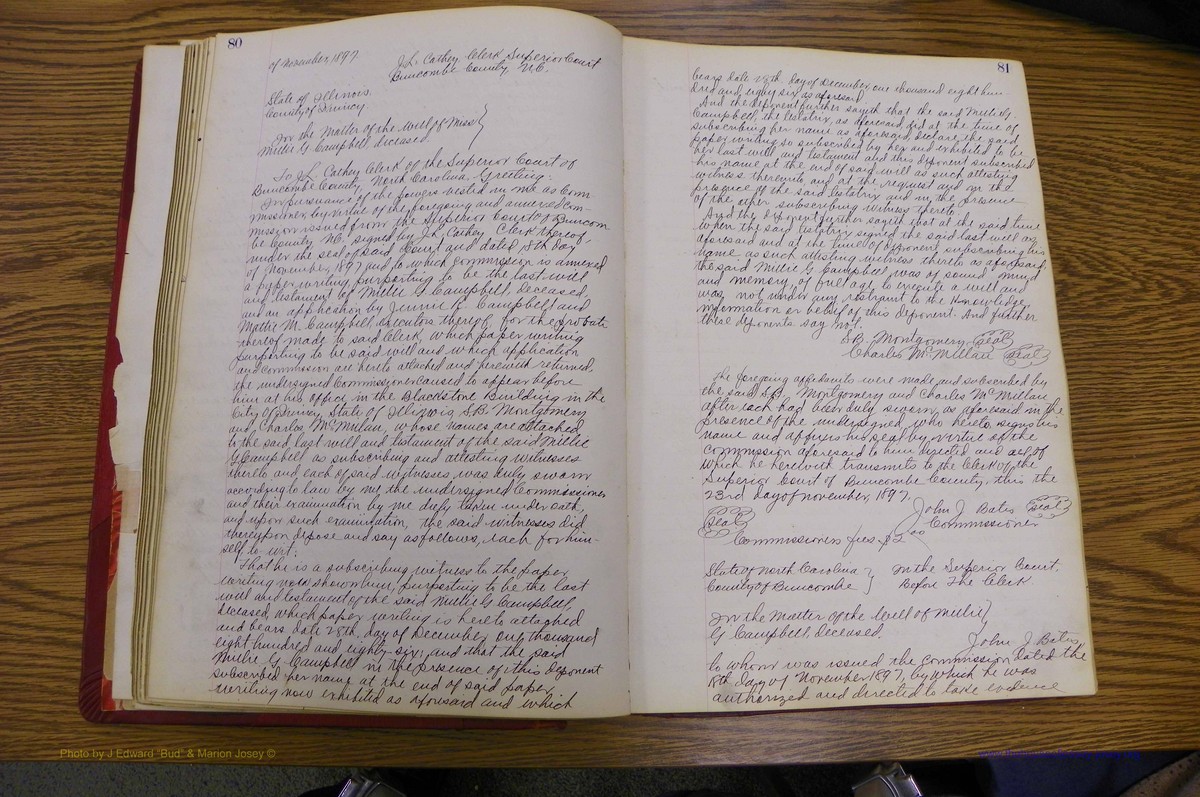 80
of November, 1897.
J.L. Cathey, Clerk Superior Court
Buncombe County, N.C.
State of Illinois.
County of Quincy.
In the Matter of the Will of Miss
Millie G. Campbell, deceased.
To J.L. Cathey Clerk of the Superior Court of
Buncombe County, North Carolina. Greeting:
In pursuance of the powers vested in me as Com
missioner, by virtue of the foregoing and annexed com-
mission issued from the Superior Court of Buncom
be County N.C. signed by J.L. Cathey Clerk thereof,
under the seal of said Court and dated 18th day
of November, 1897 and to which commission is annexed
a paper writing, purporting to be the last will
and testament of Millie G. Campbell, deceased,
and an application by Jennie R. Campbell and
Mattie M. Campbell, executors thereof, for the probate
thereof made to said Clerk, which paper writing
purporting to be said will and which application
and commission are hereto attached and herewith returned.
the undersigned Commissioner caused to appear before
him at his office in the Blackstone Building in the
City of Quincy, State of Illinois, S.B. Montgomery
and Charles McMillan, whose names are attached
to the said last will and testament of the said Millie
G. Campbell as subscribing and attesting witnesses
thereto and each of said witnesses was duly sworn
according to law by me the undersigned Commissioner
and their examination by me duly taken under oath,
and upon such examination, the said witnesses did
thereupon depose and say as follows, each for him-
self to wit:
That he is a subscribing witness to the paper
writing now shown him, purporting to be the last
will and testament of the said Millie G Campbell,
deceased, which paper writing is hereto attached
and bears date 28th, day of December one thousand
eight hundred and eighty-six; and that the said
Millie G. Campbell in the presence of this deponent
subscribed her name at the end of said paper
writing now exhibited as aforesaid and which
81
bears date 28th, day of December one thousand eight hun-
dred and eighty six as aforesaid.
And the deponent further sayeth that the said Millie G.
Campbell, the testatrix, as aforesaid, did at the time of
subscribing her name as aforesaid, declare the said
paper writing so subscribed by her and exhibited to be
her last will and testament and this deponent subscribed
his name at the end of said will as such attesting
witness thereunto, and at the request and in the
presence of the said testatrix and in the presence
of the other subscribing witness thereto.
And the deponent further sayeth that at the said time
when the said testatrix signed the said last will as
aforesaid and at the time of deponent subscribing his
name as such attesting witness thereto as aforesaid,
the said Millie G Campbell was of sound mind
and memory, of full age to execute a will and
was not under any restraint to the knowledge,
information or belief of this deponent. And further
these deponents say not.
S.B. Montgomery Seal
Charles McMillan Seal
The foregoing affidavits were made and subscribed by
the said S.B. Montgomery and Charles McMillan
after each had been duly sworn, as aforesaid in the
presence of the undersigned, who hereto signs his
name and affixes his seal by virtue of the
commission aforesaid to him directed and all of
which he herewith transmits to the Clerk of the
Superior Court of Buncombe County, this the
23rd day of November, 1897.
John J. Bates Seal
Seal
Commissioner
Commissioners fees $2 00
State of North Carolina
County of Buncombe
In the Superior Court.
Before The Clerk
In the Matter of the Will of Millie
G. Campbell, deceased.
John J. Bates,
to whom was issued the commission dated the
18th day of November 1897, by which he was
authorized and directed to take evidence
Photo by J Edward "Bud" & Marion Josey ©